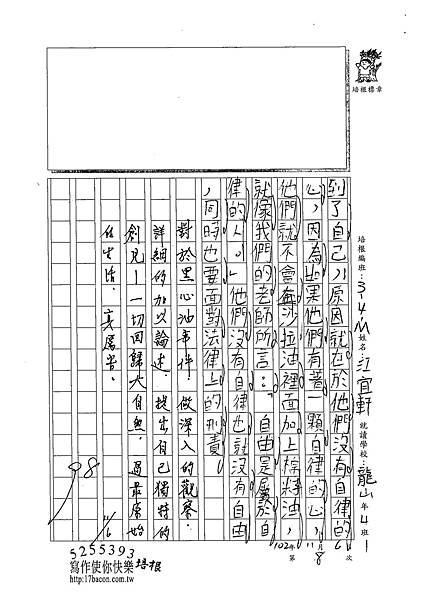 培根標章
培根編班：3-4.M 姓名 江宜軒 就讀學校 龍山 年 4 班 1
102年11月8 第6次
到了自己，原因就在於他們沒有自律的
心，因為如果他們有著一顆自律的心，
他們就不會在沙拉油裡面加上棉籽油，
就像我們的老師所言：「自由是屬於自
律的人。」他們沒有自律也就沒有自由
，同時也要面對法律上的刑責
對於黑心油事件，做深入的觀察，
詳細的加以論述，提出自己獨特的
創見—一切回歸大自然，過最原始
的生活，真厲害。
98
11/6
5255393
寫作使你快樂 培根
http://17bacon.com.tw